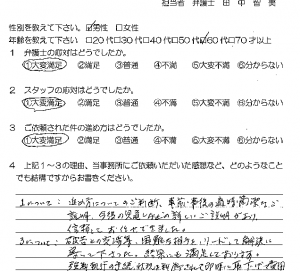 担当者 弁護士 田 中 智 美
性別を教えて下さい。 ☑男性 □女性
年齢を教えて下さい。 □20代□30代□40代□50代☑60代□70才以上
1 弁護士の応対はどうでしたか。
①大変満足 ②満足 ③普通 ④不満 ⑤大変不満 ⑥分からない
2 スタッフの応対はどうでしたか。
①大変満足 ②満足 ③普通 ④不満 ⑤大変不満 ⑥分からない
3 ご依頼された件の進め方はどうでしたか。
①大変満足 ②満足 ③普通 ④不満 ⑤大変不満 ⑥分からない
4 上記1～3の理由、当事務所にご依頼いただいた感想など、どのようなこと
でも結構ですからお書きください。
1について: 進め方についてのご判断、事前・事後の
説明、今後の見通しなどの詳しいご説明があり、
信頼してお任せできました。
3について: との交渉等、困難な折りをリードして解決に
導いて下さった。結果にも満足しております。